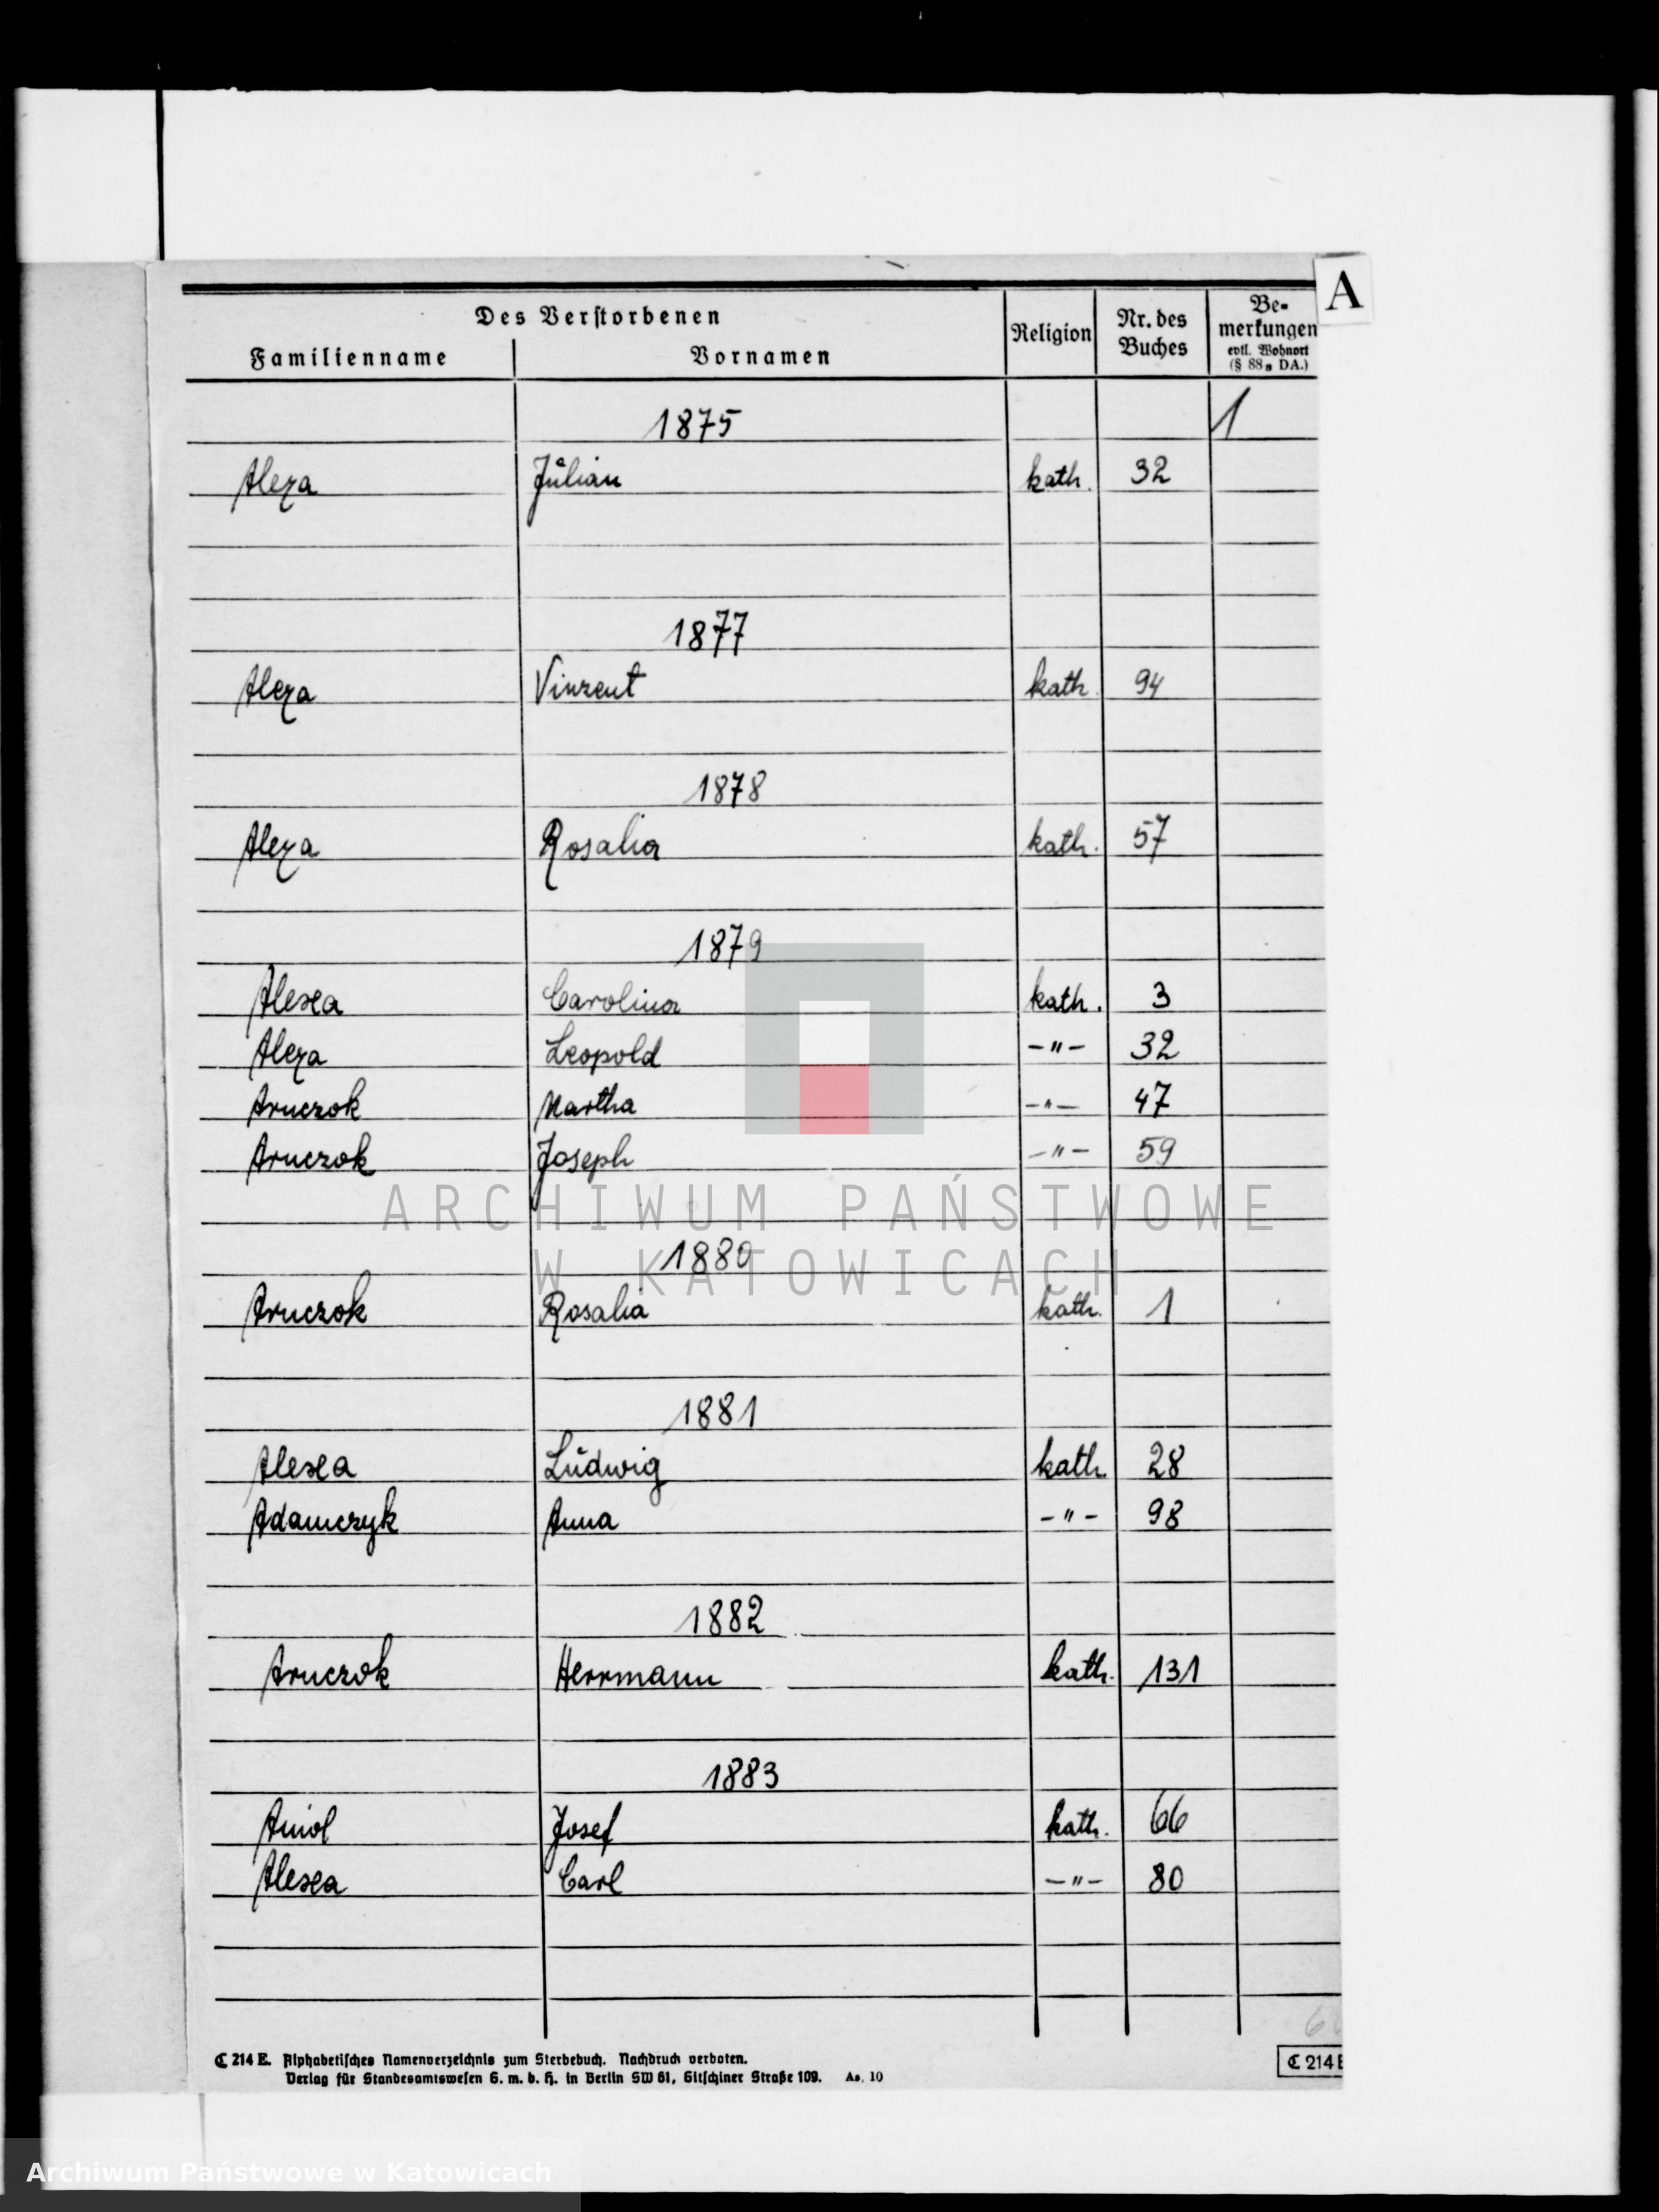 A
Des Verstorbenen
Familienname
Vornamen
Religion
Nr. des Buches
Bemerkungen evtl. Wohnort (§ 88a DA.)
1875 1
Alexa Julian kath. 32
1877
Alexa Vinzent kath. 94
1878
Alexa Rosalia kath. 57
1879
Alexa Carolina kath. 3
Alexa Leopold -"- 32
Aruczok Martha -"- 47
Aruczok Joseph -"- 59
ARCHIWUM PAŃSTWOWE
W KATOWICACH
1880
Aruczok Rosalia kath. 1
1881
Alexa Ludwig kath. 28
Adamczyk Anna -"- 98
1882
Aruczok Herrmann kath. 131
1883
Aniol Josef kath. 66
Alexa Carl -"- 80
C 214 E. Alphabetisches Namenverzeichnis zum Sterbebuch. Nachdruck verboten.
Verlag für Standesamtswesen G. m. b. H. in Berlin SW 61, Gitschiner Straße 109. As. 10
C 214 E
Archiwum Państwowe w Katowicach